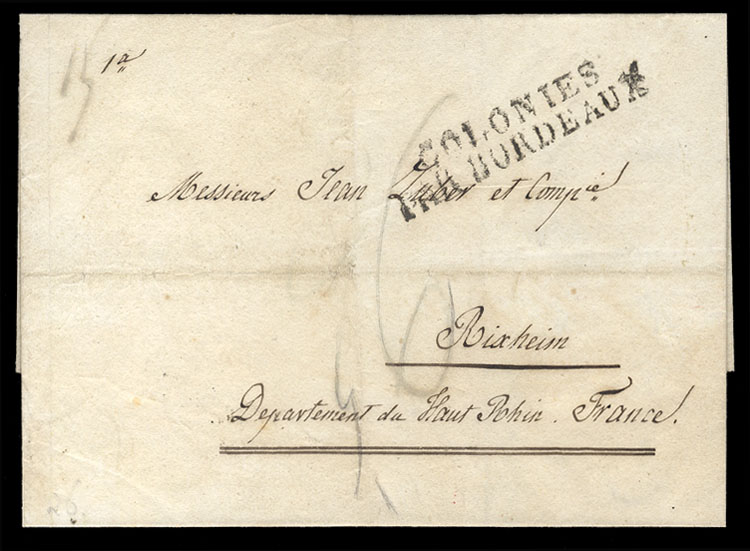 15
1ª
COLONIES
PAR BORDEAUX
Messieurs Jean Zuber et Compie!
16
Rixheim
Departement du Haut Rhin. France!